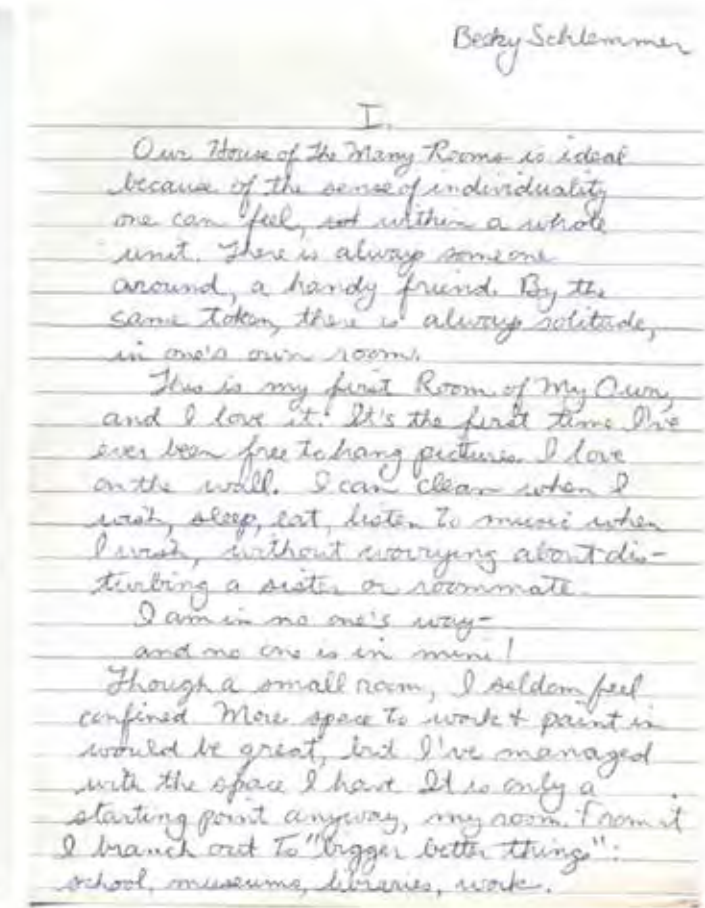 Becky Schlemmer
I.
Our House of the Many Rooms is ideal
because of the sense of individuality
one can feel, within a whole
unit. There is always someone
around, a handy friend. By the
same token, there is always solitude,
in one's own room.
This is my first Room of My Own,
and I love it. It's the first time I've
ever been free to hang pictures I love
on the wall. I can clean when I
wish, sleep, eat, listen to music when
I wish, without worrying about dis-
turbing a sister or roommate.
I am in no one's way-
and no one is in mine!
Though a small room, I seldom feel
confined More space to work + paint in
would be great, but I've managed
with the space I have It is only a
starting point anyway, my room. From it
I branch out to "bigger better things":
school, museums, libraries, work.